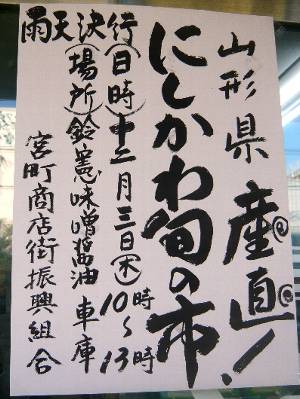 山形県 産直!
にしかわ旬の市
雨天決行
(日時)十二月三日(木)10時~13時
(場所)鈴憲味噌醤油 車庫
宮町商店街振興組合